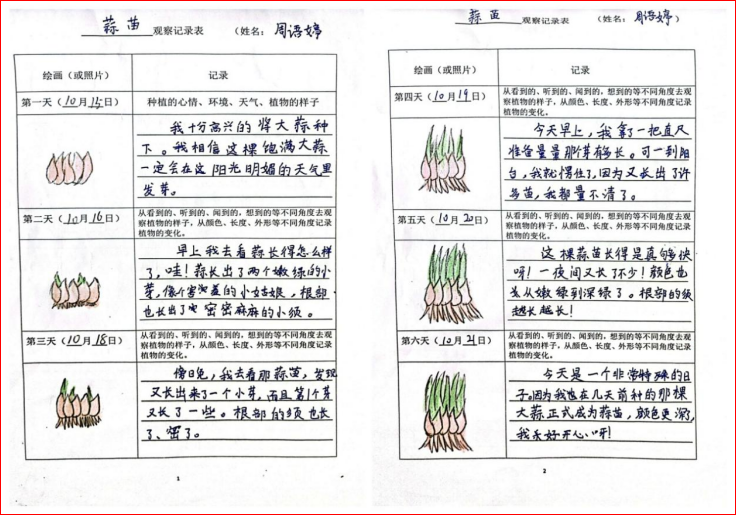 蒜苗 观察记录表 (姓名：周语婷
绘画（或照片） 记录
第一天（10月15日） 种植的心情、环境、天气、植物的样子
我十分高兴的将大蒜种
下。我相信这棵饱满大蒜
一定会在这阳光明媚的天气里
发芽。
第二天（10月16日） 从看到的、听到的、闻到的，想到的等不同角度去观
察植物的样子，从颜色、长度、外形等不同角度记录
植物的变化。
早上我去看蒜长得怎么样
了，哇！蒜长出了两个嫩绿的小
芽，像个害羞的小姑娘，根部
也长出了密密麻麻的小须。
第三天（10月18日） 从看到的、听到的、闻到的，想到的等不同角度去观
察植物的样子，从颜色、长度、外形等不同角度记录
植物的变化。
傍晚，我去看那蒜苗，发现
又长出来了一个小芽，而且第1个芽
又长了一些。根部的须也长
了、密了。
1
蒜苗 观察记录表 （姓名：周语婷）
绘画（或照片） 记录
第四天（10月19日） 从看到的、听到的、闻到的、想到的等不同角度去观
察植物的样子，从颜色、长度、外形等不同角度记录
植物的变化。
今天早上，我拿了一把直尺
准备量量那芽有多长。可一到阳
台，我就愣住了，因为又长出了许
多苗，我都量不清了。
第五天（10月20日） 从看到的、听到的、闻到的、想到的等不同角度去观
察植物的样子，从颜色、长度、外形等不同角度记录
植物的变化。
这棵蒜苗长得是真够快
呀！一夜间又长了不少！颜色也
从嫩绿到深绿了。根部的须
越长越长！
第六天（10月21日） 从看到的、听到的、闻到的、想到的等不同角度去观
察植物的样子，从颜色、长度、外形等不同角度记录
植物的变化。
今天是一个非常特殊的日
子。因为我也在几天前种的那棵
大蒜正式成为蒜苗，颜色更深了，
我永好开心呀！
2